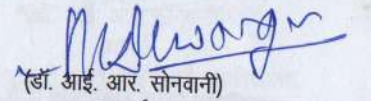 (डॉ. आई. आर. सोनवानी)